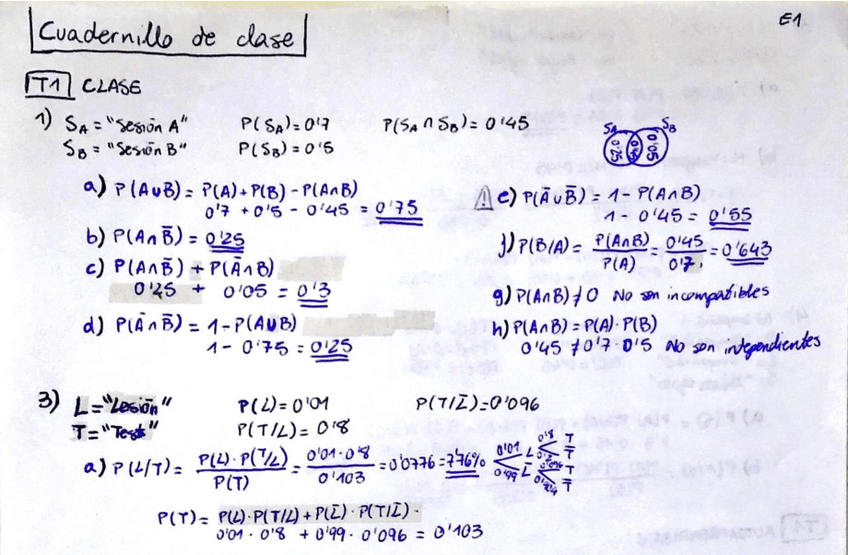 Cuadernillo de clase
E1
T1 CLASE
1) S_A = "Sesión A" P(S_A)=0'7 P(S_A ∩ S_B)=0'45
S_B = "Sesión B" P(S_B)=0'5
S_A S_B
0'25 0'45 0'05
a) P(A∪B) = P(A)+P(B) - P(A∩B)
0'7 + 0'5 - 0'45 = 0'75
b) P(A∩B̄) = 0'25
c) P(A∩B̄) + P(Ā∩B)
0'25 + 0'05 = 0'3
d) P(Ā∩B̄) = 1-P(A∪B)
1 - 0'75 = 0'25
⚠ e) P(Ā∪B̄) = 1- P(A∩B)
1 - 0'45 = 0'55
f) P(B/A) = P(A∩B)/P(A) = 0'45/0'7 = 0'643
g) P(A∩B) ≠ 0 No son incompatibles
h) P(A∩B) = P(A)·P(B)
0'45 ≠ 0'7 · 0'5 No son independientes
3) L="Lesión" P(L)=0'01 P(T/L̄)=0'096
T="Test" P(T/L)=0'8
a) P(L/T) = P(L)·P(T/L)/P(T) = 0'01·0'8/0'103 = 0'0776 = 7'76%
0'01 L 0'8 T
T̄
0'99 L̄ 0'096 T
T̄
P(T) = P(L)·P(T/L) + P(L̄)·P(T/L̄) =
0'01 · 0'8 + 0'99 · 0'096 = 0'103